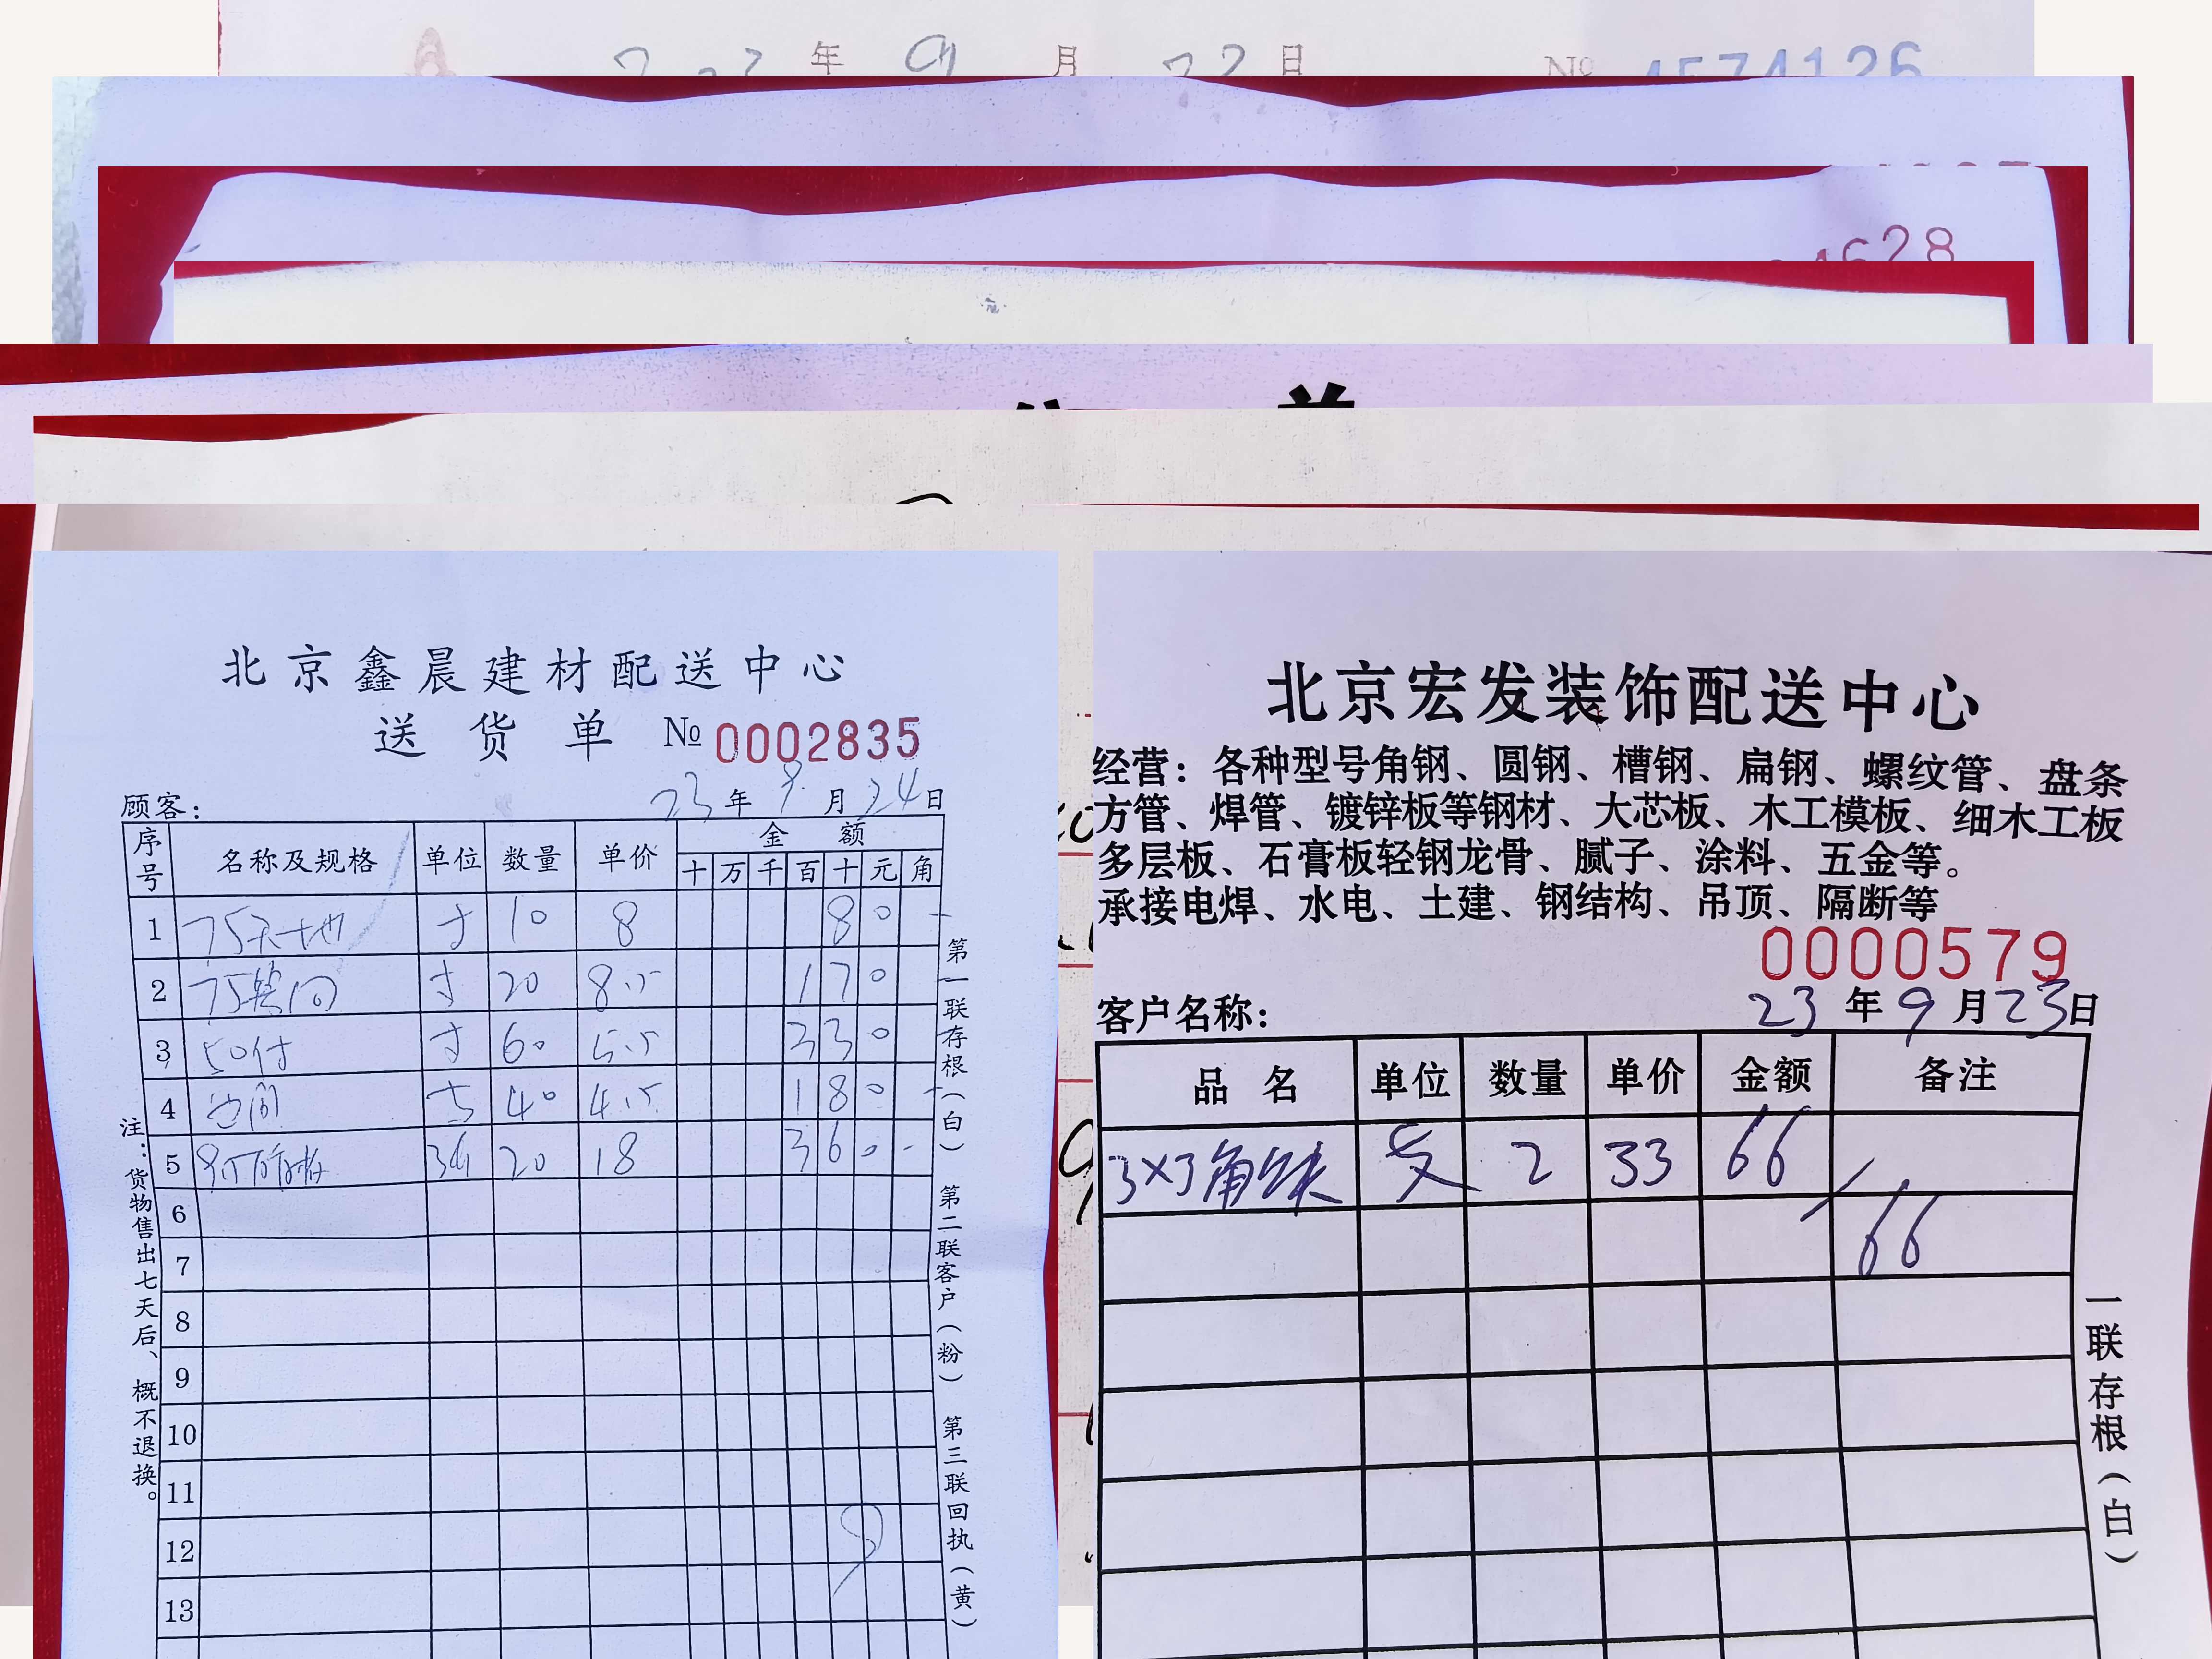 年 9 月 22 日 № 4574126
4628
北京鑫晨建材配送中心
送货单 № 0002835
顾客： 23 年 9 月 24 日
序号 名称及规格 单位 数量 单价 金额
十 万 千 百 十 元 角
1 75天地 寸 10 8 8 0
2 75竖间 寸 20 8.5 1 7 0
3 50付 寸 60 5.5 3 3 0
4 边间 支 40 4.5 1 8 0
5 张 20 18 3 6 0
6
7
8
9
10
11
12
13
注：货物售出七天后、概不退换。
第一联存根（白） 第二联客户（粉） 第三联回执（黄）
北京宏发装饰配送中心
经营：各种型号角钢、圆钢、槽钢、扁钢、螺纹管、盘条
方管、焊管、镀锌板等钢材、大芯板、木工模板、细木工板
多层板、石膏板轻钢龙骨、腻子、涂料、五金等。
承接电焊、水电、土建、钢结构、吊顶、隔断等
0000579
客户名称： 23 年 9 月 23 日
品名 单位 数量 单价 金额 备注
3×3角铁 支 2 33 66
66
一联存根（白）